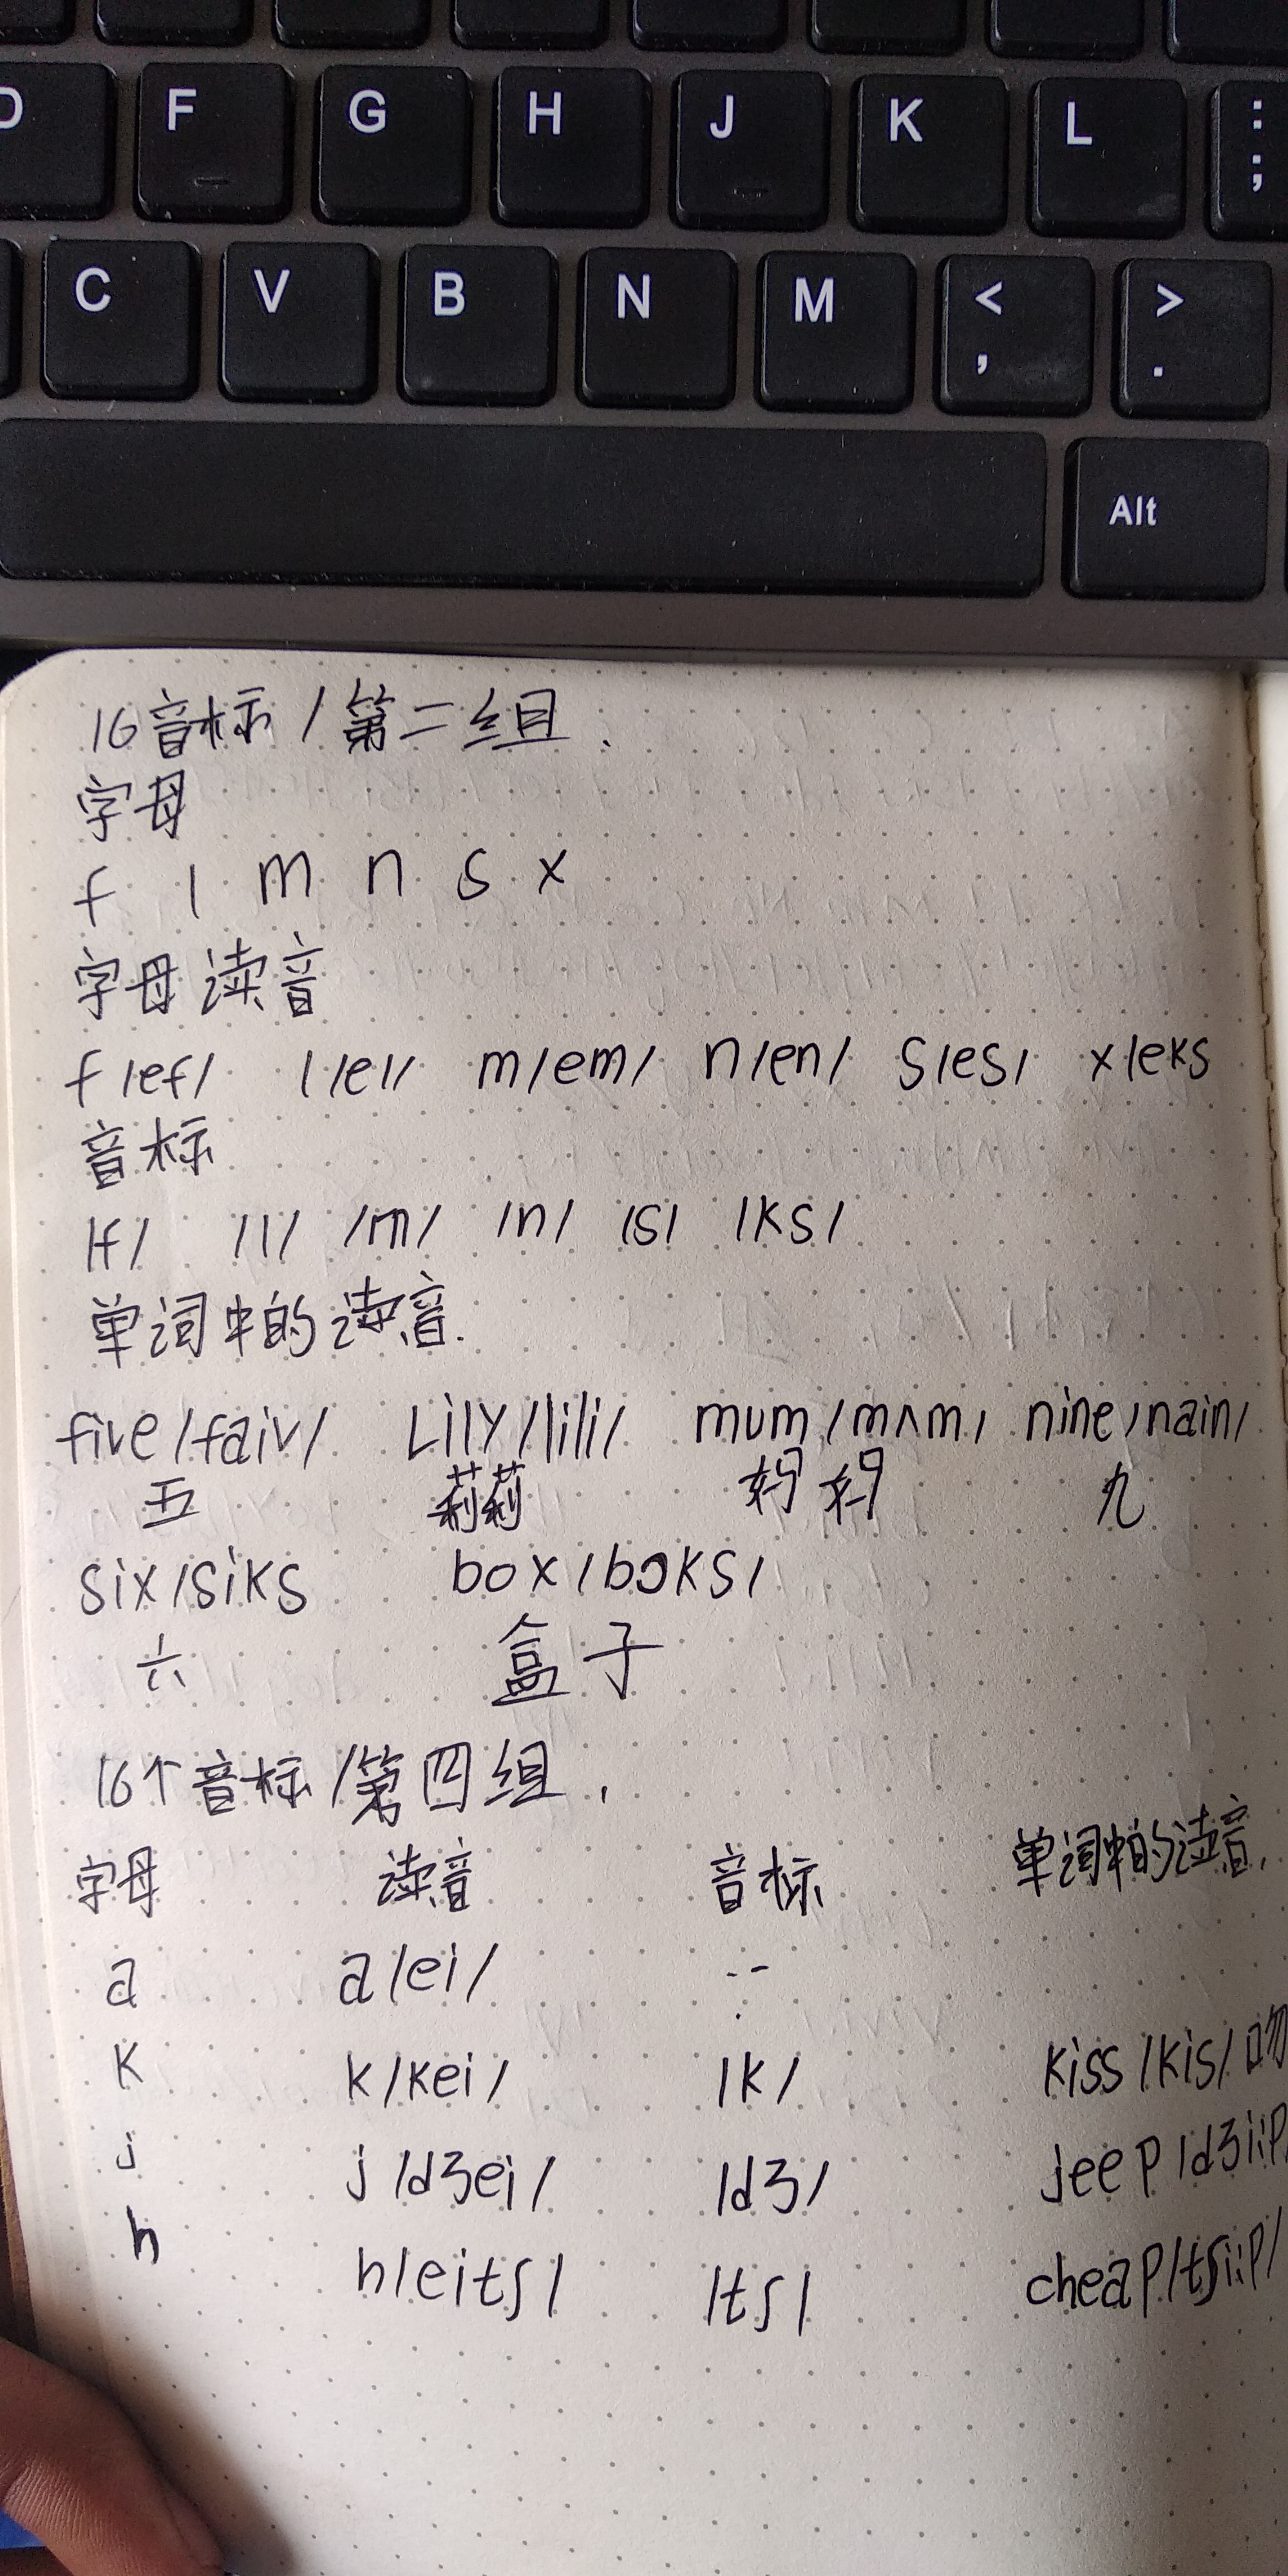 D F G H J K L : ;
C V B N M < , > .
Alt
16音标/第二组.
字母
f l m n s x
字母读音
f/ef/ l/el/ m/em/ n/en/ s/es/ x/eks
音标
/f/ /l/ /m/ /n/ /s/ /ks/
单词中的读音.
five/faiv/ Lily/lili/ mum/mʌm/ nine/nain/
五 莉莉 妈妈 九
six/siks box/bɔks/
六 盒子
16个音标/第四组.
字母 读音 音标 单词中的读音.
a a/ei/ --
k k/kei/ /k/ kiss/kis/吻
j j/dʒei/ /dʒ/ jeep/dʒi:p/
h h/eitʃ/ /tʃ/ cheap/tʃi:p/